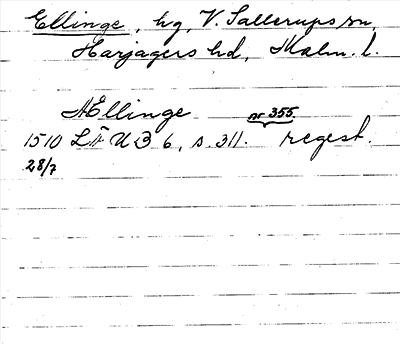 Ellinge, hg, V. Sallerups sn,
Harjagers hd, Malm. l.
Ællinge nr 355.
1510 LÄUB 6, s. 311. regest.
28/7